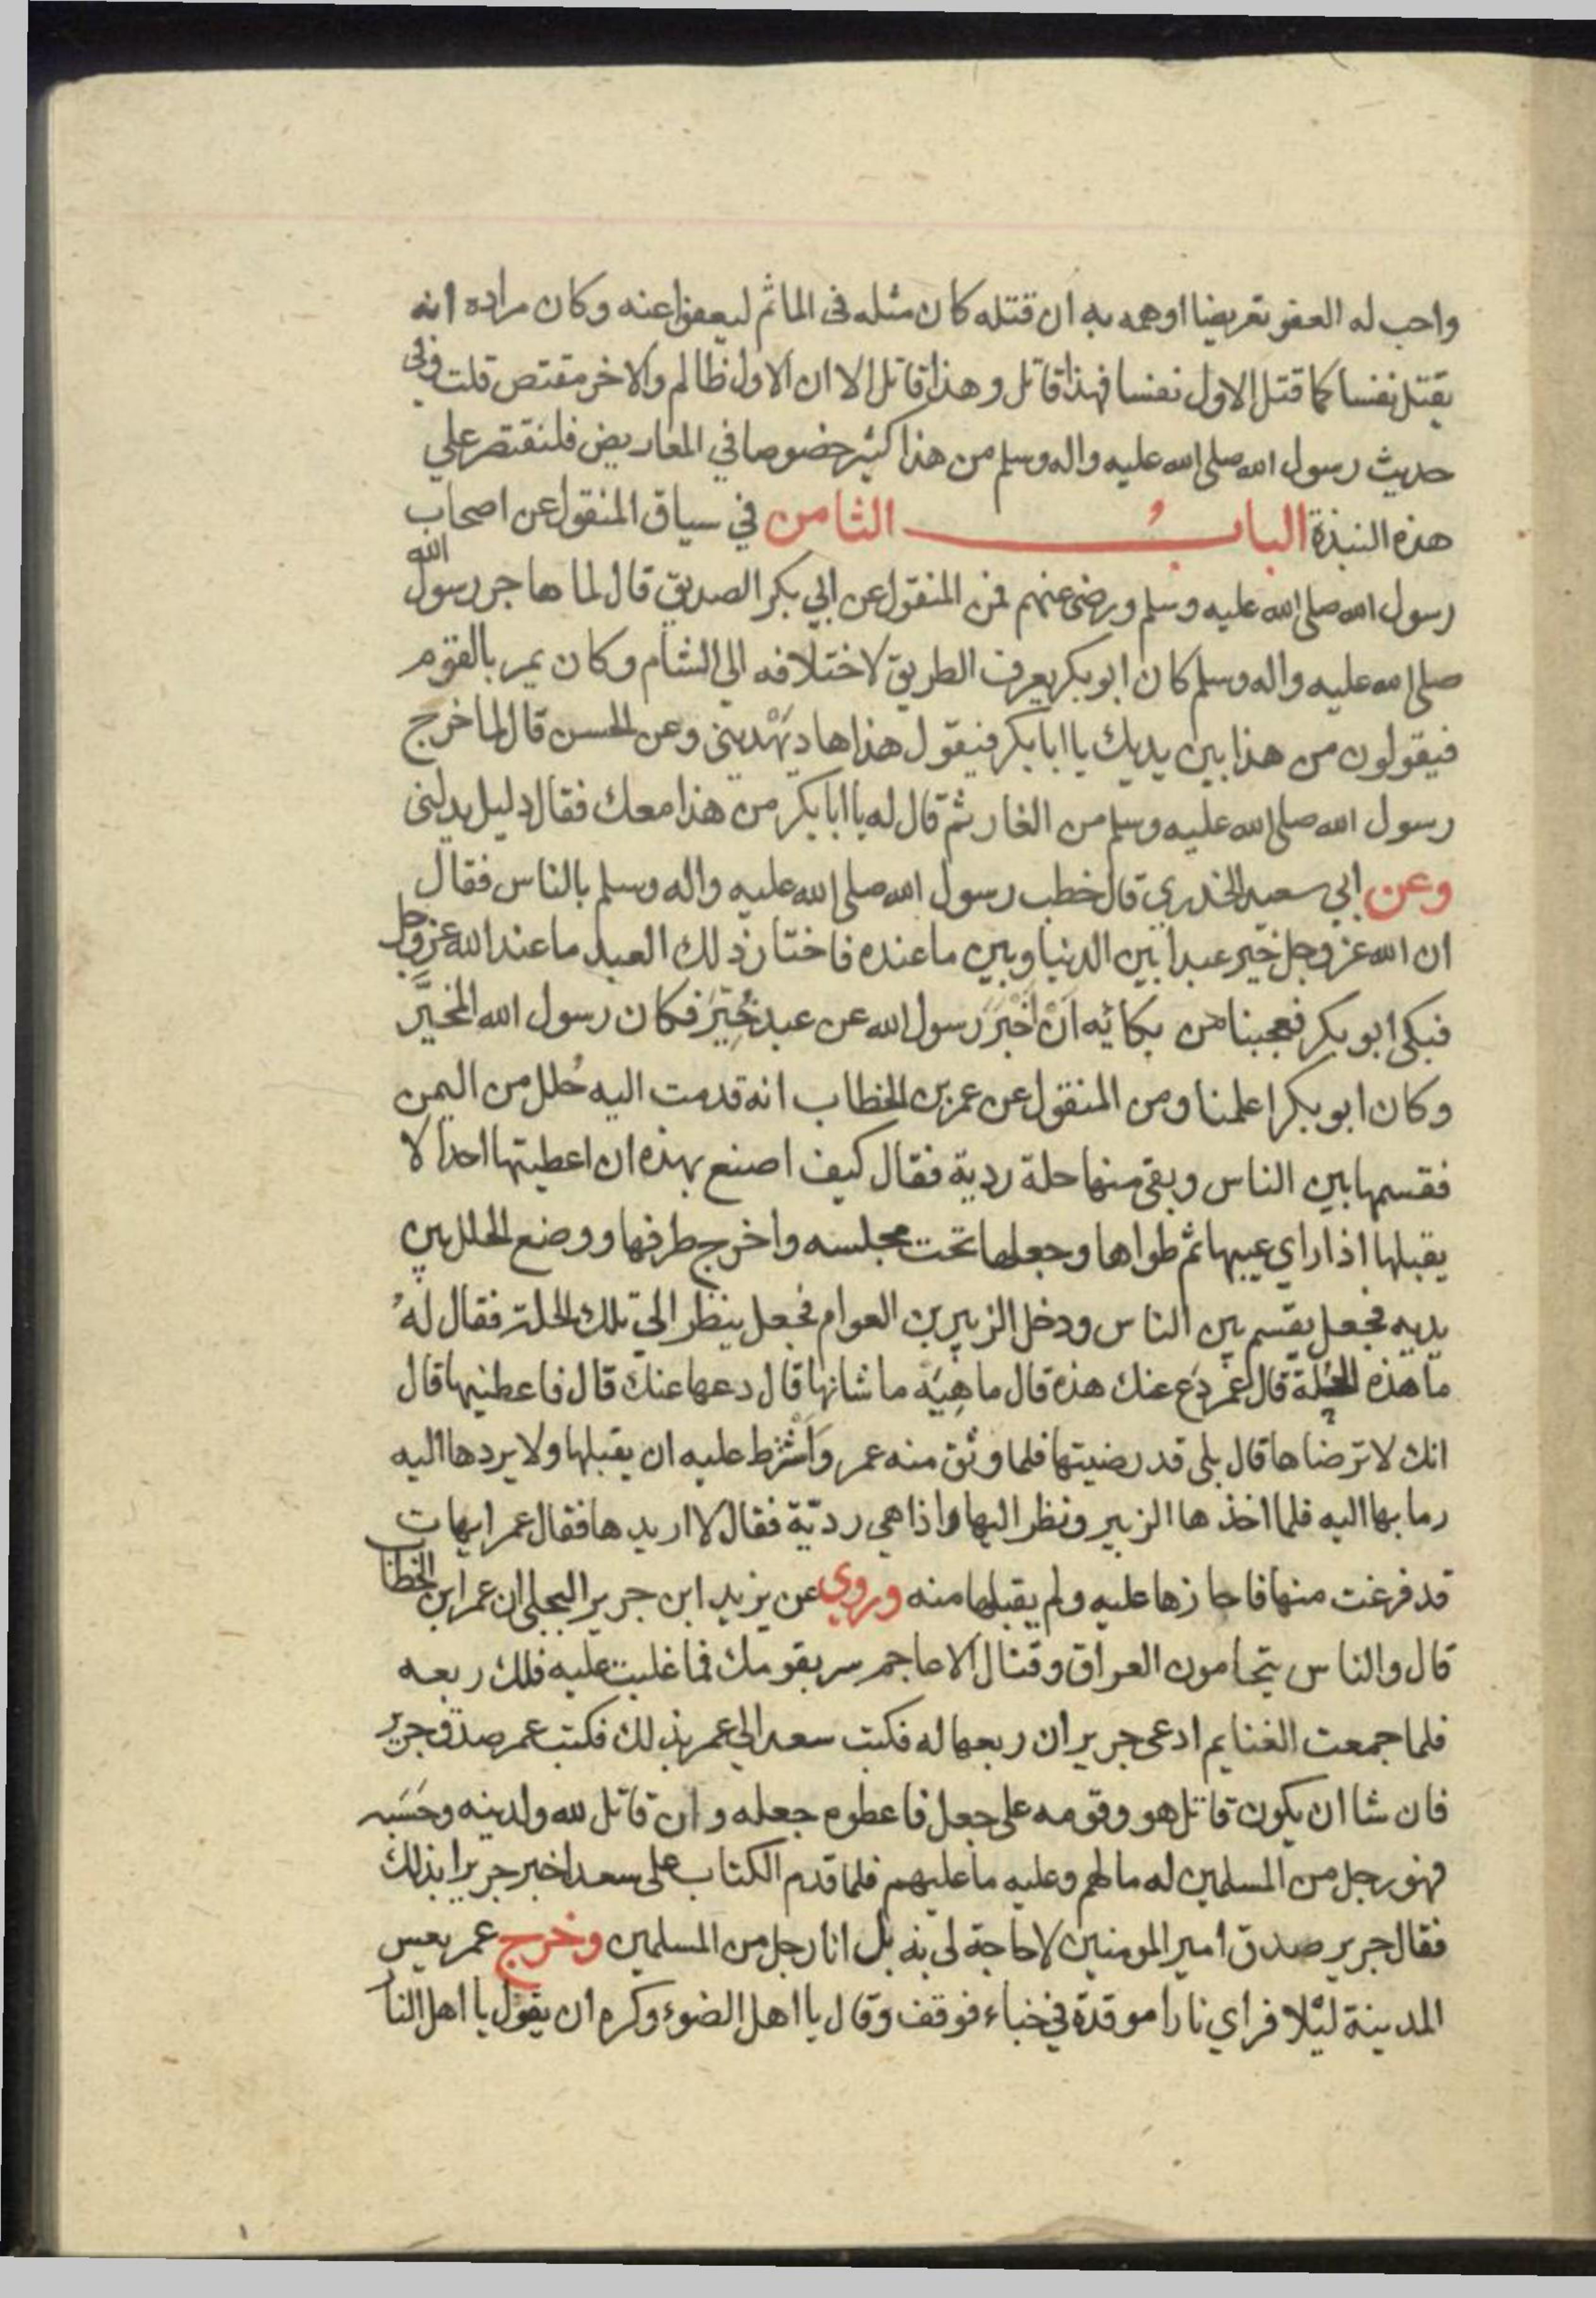 واحب له العفو تعريضا اوهمه به ان قتله كان مثله فى الماثم ليعفوا عنه وكان مراده انه
يقتل نفسا كما قتل الاول نفسا فهذا قاتل وهذا قاتل الا ان الاول ظالم والاخر مقتص قلت وفى
حديث رسول الله صلى الله عليه واله وسلم من هذا كثير خصوصا في المعاريض فلنقتصر علي
هذه النبذة البابُ الثامن في سياق المنقول عن اصحاب
رسول الله صلى الله عليه وسلم ورضى عنهم فمن المنقول عن ابي بكر الصديق قال لما هاجر رسول الله
صلى الله عليه واله وسلم كان ابو بكر يعرف الطريق لاختلافه الى الشام وكان يمر بالقوم
فيقولون من هذا بين يديك يا ابا بكر فيقول هذا هاد يَهْديني وعن الحسن قال لما خرج
رسول الله صلى الله عليه وسلم من الغار ثم قال له يا ابا بكر من هذا معك فقال دليل يدلني
وعن ابي سعيد الخدري قال خطب رسول الله صلى الله عليه واله وسلم بالناس فقال
ان الله عز وجل خير عبدا بين الدنيا وبين ما عنده فاختار ذلك العبد ما عند الله عز وجل
فبكى ابو بكر فعجبنا من بكائه اَنْ اَخْبَرَ رسول الله عن عبد خُيِّرَ فكان رسول الله المخيَّر
وكان ابو بكر اعلمنا ومن المنقول عن عمر بن الخطاب انه قدمت اليه حُلل من اليمن
فقسمها بين الناس وبقى منها حلة ردية فقال كيف اصنع بهذه ان اعطيتها احدا لا
يقبلها اذا راي عيبها ثم طواها وجعلها تحت مجلسه واخرج طرفها ووضع الحلل بين
يديه فجعل يقسم بين الناس ودخل الزبير بن العوام فجعل ينظر الى تلك الحلة فقال لهُ
ما هذه الحُلة قال عمر دَع عنك هذه قال ما هِيَهْ ما شانها قال دعها عنك قال فاعطنيها قال
انك لا ترضاها قال بلى قد رضيتها فلما وثق منه عمر وَاشْترط عليه ان يقبلها ولا يردها اليه
رما بها اليه فلما اخذها الزبير ونظر اليها واذا هي رديّة فقال لا اريدها فقال عمر ايهات
قد فرغت منها فاجازها عليه ولم يقبلها منه وروي عن يزيد ابن جرير البجلي ان عمر ابن الخطاب
قال والناس يتحامون العراق وقتال الاعاجم سر بقومك فما غلبت عليه فلك ربعه
فلما جمعت الغنايم ادعى جرير ان ربعها له فكتب سعد الي عمر بذلك فكتب عمر صدق جرير
فان شا ان يكون قاتل هو وقومه على جعل فاعطوه جعله وان قاتل لله ولدينه وحَسَبه
فهو رجل من المسلمين له ما لهم وعليه ما عليهم فلما قدم الكتاب على سعد اخبر جريرا بذلك
فقال جرير صدق امير المومنين لا حاجة لى به بل انا رجل من المسلمين وخرج عمر يعس
المدينة ليلا فراي نارا موقدة في خباء فوقف وقال يا اهل الضوء وكره ان يقول يا اهل النا